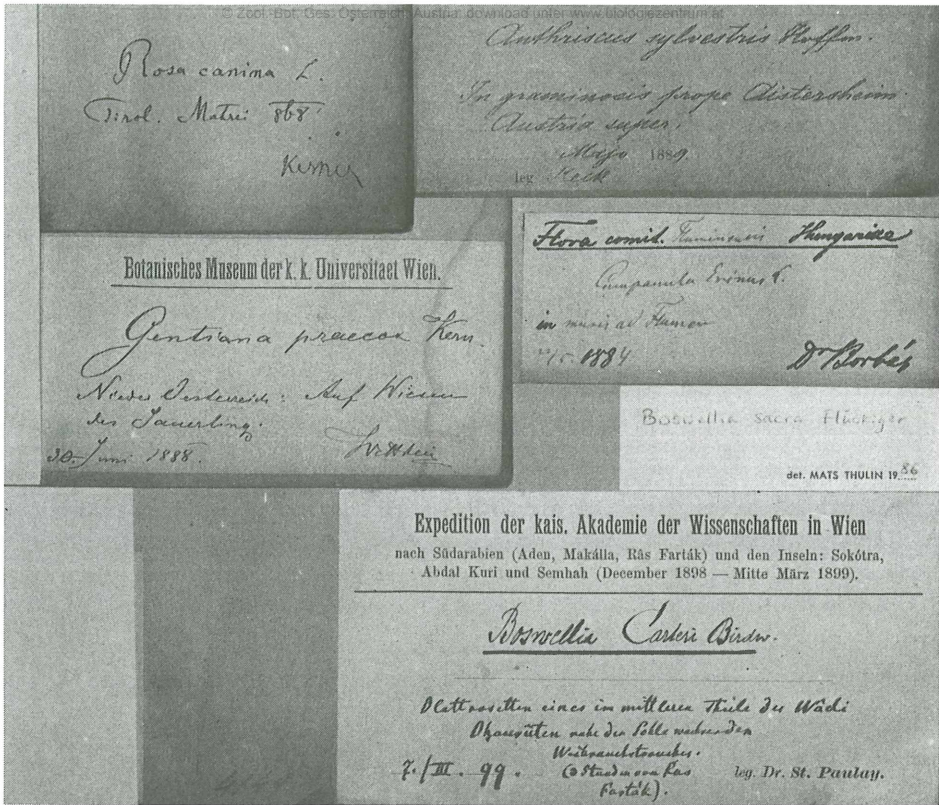 © Zool.-Bot. Ges. Österreich, Austria; download unter www.biologiezentrum.at
Rosa canina L.
Tirol. Matrei 868
Kerner
Anthriscus sylvestris Hoffm.
In graminosis prope Aistersheim
Austria super.
Majo 1889.
leg Keck
Botanisches Museum der k. k. Universitaet Wien.
Gentiana praecox Kern.
Nieder Oesterreich: Auf Wiesen
des Jauerling.
30. Juni 1888.
Wettstein
Flora comit. Fluminensis Hungariae
Campanula Erinus L.
in muris ad Flumen
1884
Dr Borbás
Boswellia sacra Flückiger
det. MATS THULIN 1986
Expedition der kais. Akademie der Wissenschaften in Wien
nach Südarabien (Aden, Makálla, Râs Farták) und den Inseln: Sokótra,
Abdal Kuri und Semhah (December 1898 — Mitte März 1899).
Boswellia Carteri Birdw.
Blattrosetten eines im mittleren Theile des Wâdi
nahe der Sohle wachsenden
Weihrauchstrauches.
(3 Stunden von Ras
Farták).
7./III. 99.
leg. Dr. St. Paulay.